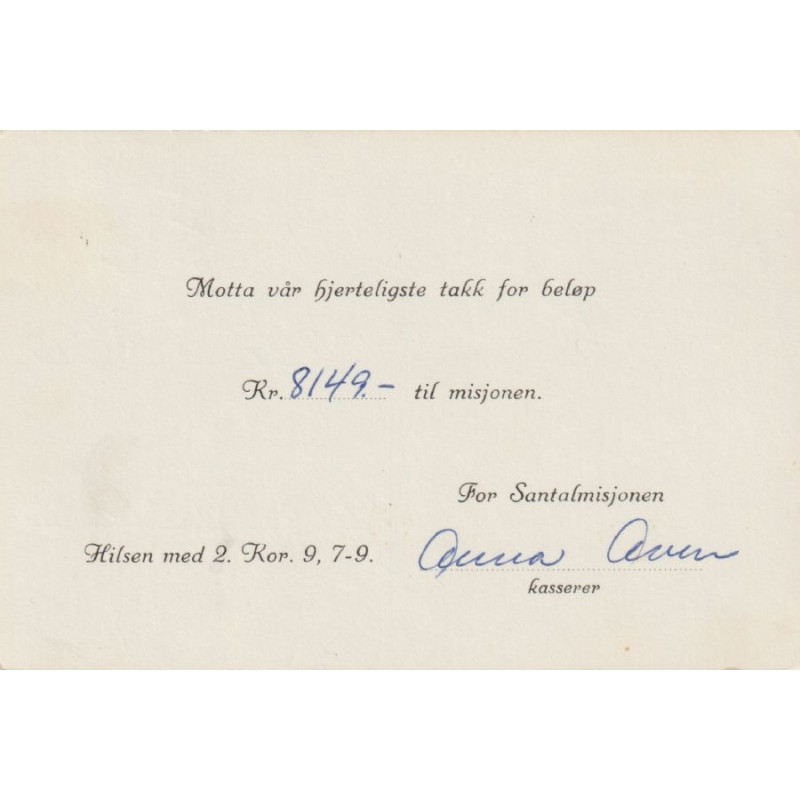 Motta vår hjerteligste takk for beløp
Kr. 8149.– til misjonen.
For Santalmisjonen
Hilsen med 2. Kor. 9, 7-9. Anna
kasserer